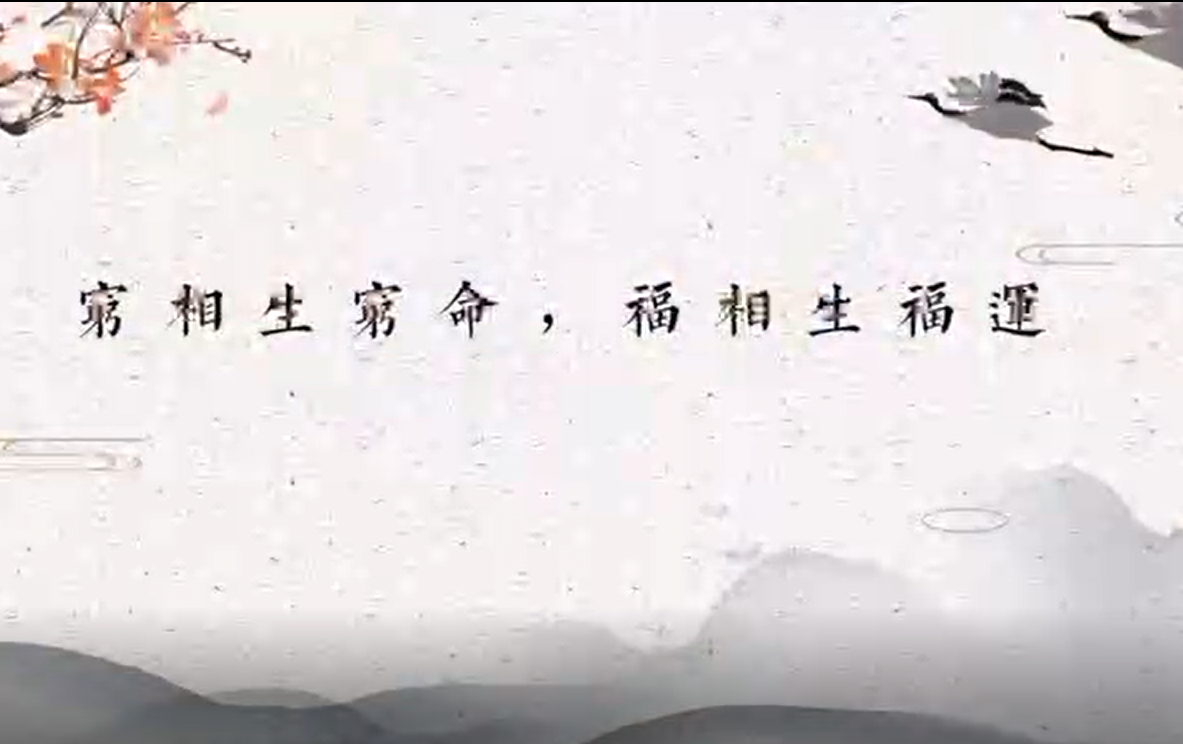 窮相生窮命，福相生福運